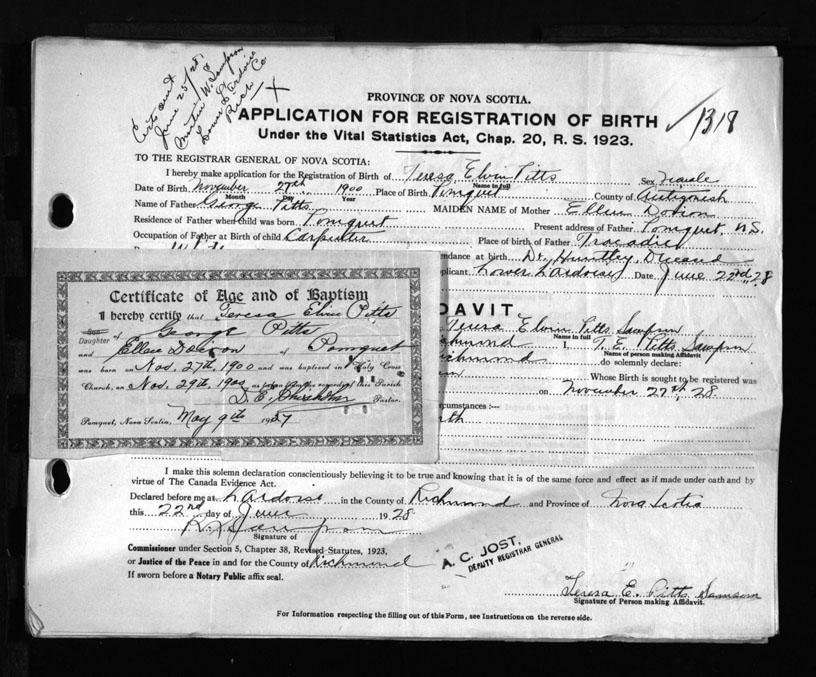 Certs sent
June 25/28
Martin W. Sampson
Lower L'ardoise
Rich Co
PROVINCE OF NOVA SCOTIA.
APPLICATION FOR REGISTRATION OF BIRTH
1318
Under the Vital Statistics Act, Chap. 20, R. S. 1923.
TO THE REGISTRAR GENERAL OF NOVA SCOTIA:
I hereby make application for the Registration of Birth of Teresa Elvin Pitts Sex Female
Name in full
Date of Birth November 27th 1900 Place of Birth Pomquet County of Antigonish
Month Day Year
Name of Father George Pitts MAIDEN NAME of Mother Ellen
Residence of Father when child was born Pomquet Present address of Father Pomquet N.S.
Occupation of Father at Birth of child Carpenter Place of birth of Father Tracadie
ndance at birth Dr. Huntley, Deceased
plicant Lower Lardoise Date June 22nd 28
Certificate of Age and of Baptism
I hereby certify that Teresa Elvin Pitts
Son
Daughter of George Pitts
and Ellen of Pomquet
was born on Nov. 27th 1900 and was baptised in Holy Cross
Church, on Nov. 29th 1900 as recorded this Parish
Pastor.
Pomquet, Nova Scotia, May 9th 1927
DAVIT
Teresa Elvin Pitts Sampson
Name in full
chmond I, T. E. Pitts Sampson
Name of person making Affidavit
Richmond do solemnly declare:
Whose Birth is sought to be registered was
on November 27th, 28.
cumstances :—
rth
I make this solemn declaration conscientiously believing it to be true and knowing that it is of the same force and effect as if made under oath and by
virtue of The Canada Evidence Act.
Declared before me at Lardoise in the County of Richmond and Province of Nova Scotia
this 22nd day of June 1928
Sampson
Signature of
Commissioner under Section 5, Chapter 38, Revised Statutes, 1923,
or Justice of the Peace in and for the County of Richmond
If sworn before a Notary Public affix seal.
A. C. JOST,
DEPUTY REGISTRAR GENERAL
Teresa E. Pitts Sampson
Signature of Person making Affidavit.
For Information respecting the filling out of this Form, see Instructions on the reverse side.